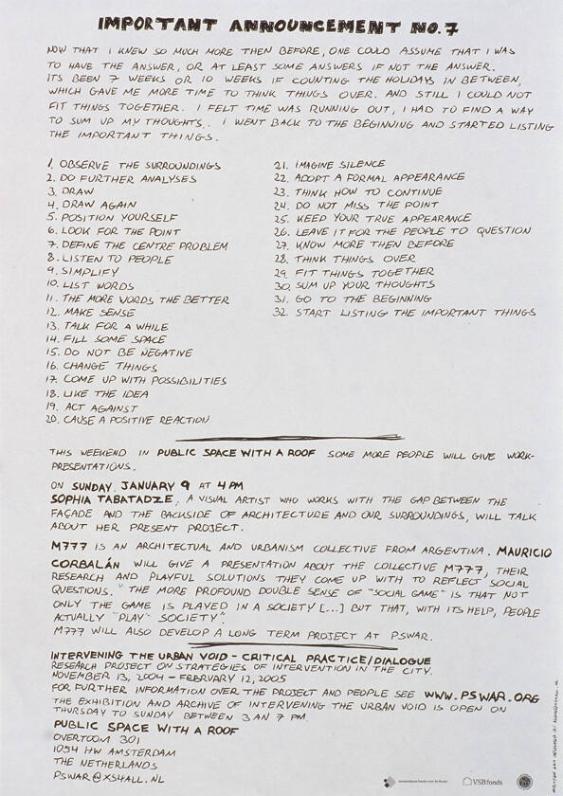 IMPORTANT ANNOUNCEMENT NO.7
NOW THAT I KNEW SO MUCH MORE THEN BEFORE, ONE COULD ASSUME THAT I WAS
TO HAVE THE ANSWER, OR AT LEAST SOME ANSWERS IF NOT THE ANSWER.
ITS BEEN 7 WEEKS OR 10 WEEKS IF COUNTING THE HOLIDAYS IN BETWEEN,
WHICH GAVE ME MORE TIME TO THINK THINGS OVER. AND STILL I COULD NOT
FIT THINGS TOGETHER. I FELT TIME WAS RUNNING OUT, I HAD TO FIND A WAY
TO SUM UP MY THOUGHTS. I WENT BACK TO THE BEGINNING AND STARTED LISTING
THE IMPORTANT THINGS.
1. OBSERVE THE SURROUNDINGS
2. DO FURTHER ANALYSES
3. DRAW
4. DRAW AGAIN
5. POSITION YOURSELF
6. LOOK FOR THE POINT
7. DEFINE THE CENTRE PROBLEM
8. LISTEN TO PEOPLE
9. SIMPLIFY
10. LIST WORDS
11. THE MORE WORDS THE BETTER
12. MAKE SENSE
13. TALK FOR A WHILE
14. FILL SOME SPACE
15. DO NOT BE NEGATIVE
16. CHANGE THINGS
17. COME UP WITH POSSIBILITIES
18. LIKE THE IDEA
19. ACT AGAINST
20. CAUSE A POSITIVE REACTION
21. IMAGINE SILENCE
22. ADOPT A FORMAL APPEARANCE
23. THINK HOW TO CONTINUE
24. DO NOT MISS THE POINT
25. KEEP YOUR TRUE APPEARANCE
26. LEAVE IT FOR THE PEOPLE TO QUESTION
27. KNOW MORE THEN BEFORE
28. THINK THINGS OVER
29. FIT THINGS TOGETHER
30. SUM UP YOUR THOUGHTS
31. GO TO THE BEGINNING
32. START LISTING THE IMPORTANT THINGS
THIS WEEKEND IN PUBLIC SPACE WITH A ROOF SOME MORE PEOPLE WILL GIVE WORK-
PRESENTATIONS.
ON SUNDAY, JANUARY 9 AT 4 PM
SOPHIA TABATADZE, A VISUAL ARTIST WHO WORKS WITH THE GAP BETWEEN THE
FAÇADE AND THE BACKSIDE OF ARCHITECTURE AND OUR SURROUNDINGS, WILL TALK
ABOUT HER PRESENT PROJECT.
M777 IS AN ARCHITECTUAL AND URBANISM COLLECTIVE FROM ARGENTINA. MAURICIO
CORBALÁN WILL GIVE A PRESENTATION ABOUT THE COLLECTIVE M777, THEIR
RESEARCH AND PLAYFUL SOLUTIONS THEY COME UP WITH TO REFLECT SOCIAL
QUESTIONS. "THE MORE PROFOUND DOUBLE SENSE OF "SOCIAL GAME" IS THAT NOT
ONLY THE GAME IS PLAYED IN A SOCIETY [...] BUT THAT, WITH ITS HELP, PEOPLE
ACTUALLY "PLAY" SOCIETY".
M777 WILL ALSO DEVELOP A LONG TERM PROJECT AT PSWAR.
INTERVENING THE URBAN VOID - CRITICAL PRACTICE/DIALOGUE
RESEARCH PROJECT ON STRATEGIES OF INTERVENTION IN THE CITY.
NOVEMBER 13, 2004 - FEBRUARY 12, 2005
FOR FURTHER INFORMATION OVER THE PROJECT AND PEOPLE SEE WWW.PSWAR.ORG
THE EXHIBITION AND ARCHIVE OF INTERVENING THE URBAN VOID IS OPEN ON
THURSDAY TO SUNDAY BETWEEN 3 AN 7 PM.
PUBLIC SPACE WITH A ROOF
OVERTOOM 301
1054 HW AMSTERDAM
THE NETHERLANDS
PSWAR@XS4ALL.NL
VSBfonds